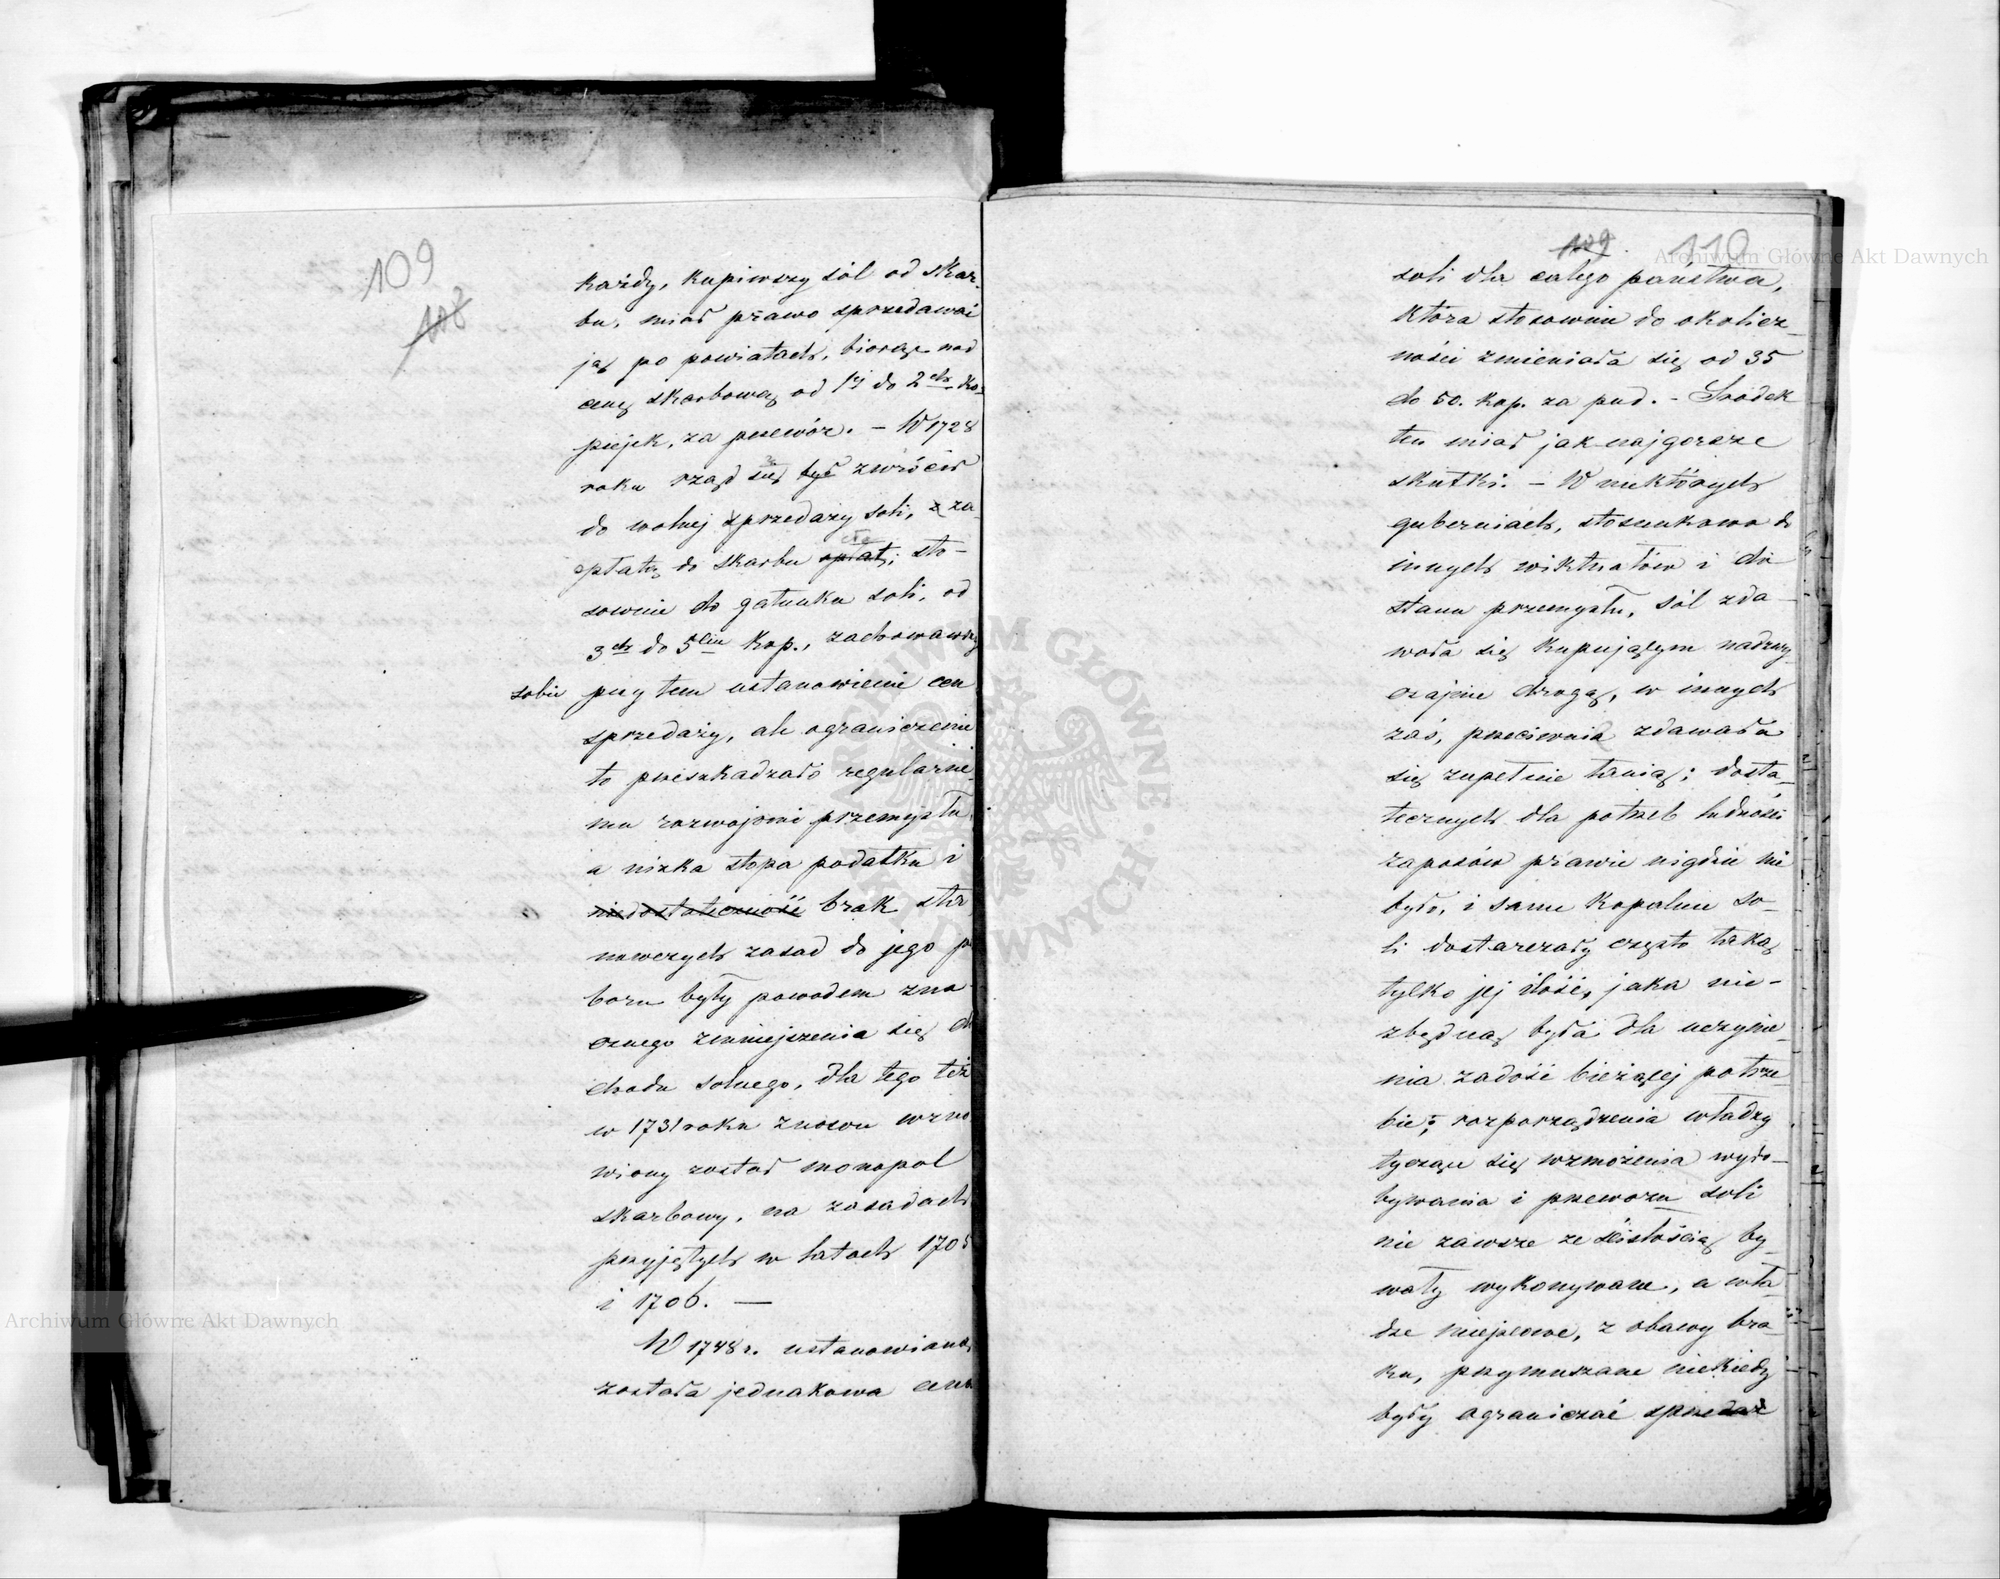 109
108
każdy, kupiwszy sól od skar-
bu, miał prawo sprzedawać
ją po powiatach, biorąc nad
cenę skarbową od 1ej do 2ch ko-
piejek, za przewóz. – W 1728
roku rząd się był zwrócił
do wolnej sprzedaży soli, z za-
opłatą do skarbu opłat, sto-
sownie do gatunku soli, od
3ch do 5ciu kop., zachowawszy
sobie przy tem ustanowienie cen
sprzedaży, ale ograniczenie
to przeszkadzało regularne-
mu rozwojowi przemysłu,
a nizka stopa podatku i
niedostateczność brak sta
nowczych zasad do jego po
boru były powodem zna
cznego zmniejszenia się do
chodu solnego, dla tego też
w 1731 roku znowu wzno
wiony został monopol
skarbowy, na zasadach
przyjętych w latach 1705
i 1706. —
W 1748 r. ustanowiona
została jednakowa cena
109. 110
soli dla całego państwa,
która stosownie do okolicz-
ności zmieniała się od 35
do 50. kop. za pud. – Środek
ten miał jak najgorsze
skutki. – W niektórych
guberniach, stosunkowo do
innych wiktuałów i do
stanu przemysłu, sól zda-
wała się kupującym nadzwy-
czajnie drogą, w innych
zaś, przeciwnie zdawała
się zupełnie tanią; dosta-
tecznych dla potrzeb ludności
zapasów prawie nigdzie nie
było, i same kopalnie so-
li dostarczały często taką
tylko jej ilość, jaka nie-
zbędną była dla uczynie-
nia zadość bieżącej potrze-
bie; rozporządzenia władzy
tyczące się wzmożenia wydo-
bywania i przewozu soli
nie zawsze ze ścisłością by-
wały wykonywane, a wła-
dze miejscowe, z obawy bra-
ku, przymuszane niekiedy
były ograniczać sprzedaż
Archiwum Główne Akt Dawnych
Archiwum Główne Akt Dawnych
ARCHIWUM GŁÓWNE AKT DAWNYCH